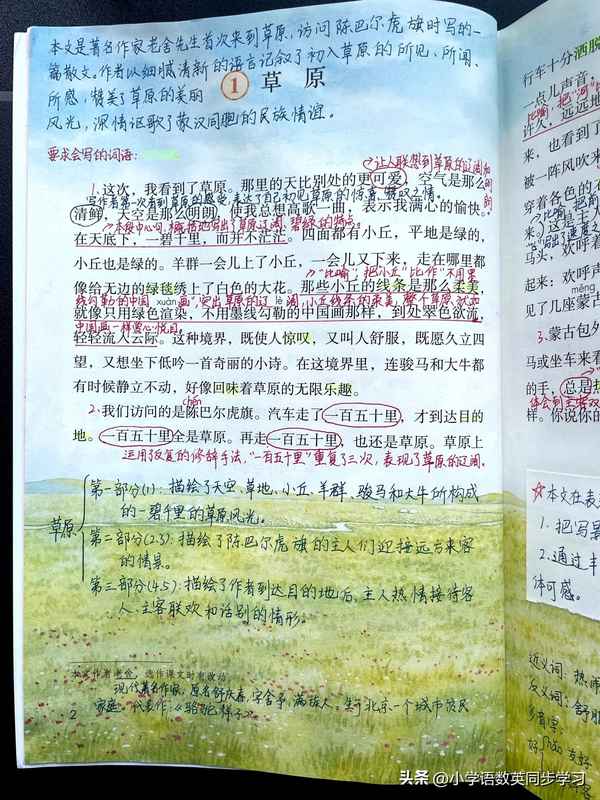 本文是著名作家老舍先生首次来到草原,访问陈巴尔虎旗时写的一
篇散文。作者以细腻清新的语言记叙了初入草原的所见、所闻、
所感,赞美了草原的美丽
风光,深情讴歌了蒙汉同胞的民族情谊。
1 草原
要求会写的词语:
让人联想到草原的辽阔和明朗
1.这次,我看到了草原。那里的天比别处的更可爱,空气是那么
写作者第一次看到草原的感受,表达了自己初见草原的惊喜、赞叹之情。
清鲜,天空是那么明朗,使我总想高歌一曲,表示我满心的愉快。
本段中心句,概括地写出了草原辽阔、碧绿的特点。
在天底下,一碧千里,而并不茫茫。四面都有小丘,平地是绿的,
小丘也是绿的。羊群一会儿上了小丘,一会儿又下来,走在哪里都
"比喻",把"小丘"比作"不用墨
像给无边的绿毯绣上了白色的大花。那些小丘的线条是那么柔美,
线勾勒的中国画",突出草原的辽阔,小丘线条的柔美,整个草原就如
xuàn
lè
就像只用绿色渲染,不用墨线勾勒的中国画那样,到处翠色欲流,
中国画一样赏心悦目。
轻轻流入云际。这种境界,既使人惊叹,又叫人舒服,既愿久立四
望,又想坐下低吟一首奇丽的小诗。在这境界里,连骏马和大牛都
有时候静立不动,好像回味着草原的无限乐趣。
chén
2.我们访问的是陈巴尔虎旗。汽车走了一百五十里,才到达目的
地。一百五十里全是草原。再走一百五十里,也还是草原。草原上
运用反复的修辞手法,"一百五十里"重复了三次,表现了草原的辽阔。
草原
第一部分(1):描绘了天空、草地、小丘、羊群、骏马和大牛所构成
的一碧千里的草原风光。
第二部分(2.3):描绘了陈巴尔虎旗的主人们迎接远方来客
的情景。
第三部分(4.5):描绘了作者到达目的地后,主人热情接待客
人、主客联欢和话别的情形。
本文作者老舍,选作课文时有改动。
现代著名作家,原名舒庆春,字舍予,满族人。生于北京一个城市贫民
家庭。代表作:《骆驼祥子》
2
行车十分洒脱
一点儿声音,
比喻,把"河"
许久,远远地
来,也看到了
被一阵风吹来
穿着各色的衣
来。这是主人
马头,欢呼着
起来:欢呼声
měng
见了几座蒙古
3.蒙古包外
马或坐车来看
的手,总是热
样。你说你的
☆本文在表
1.把写景
2.通过丰
体可感。
近义词:热闹
反义词:舒服
多音字:
好
hǎo 友好
头条 @小学语数英同步学习